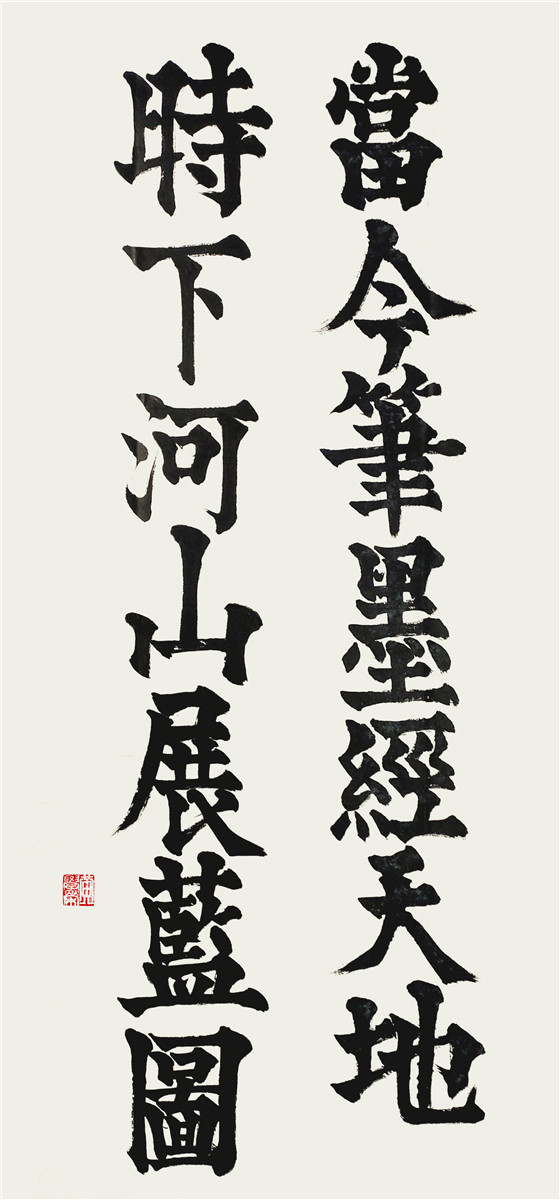 當今筆墨經天地
時下河山展藍圖